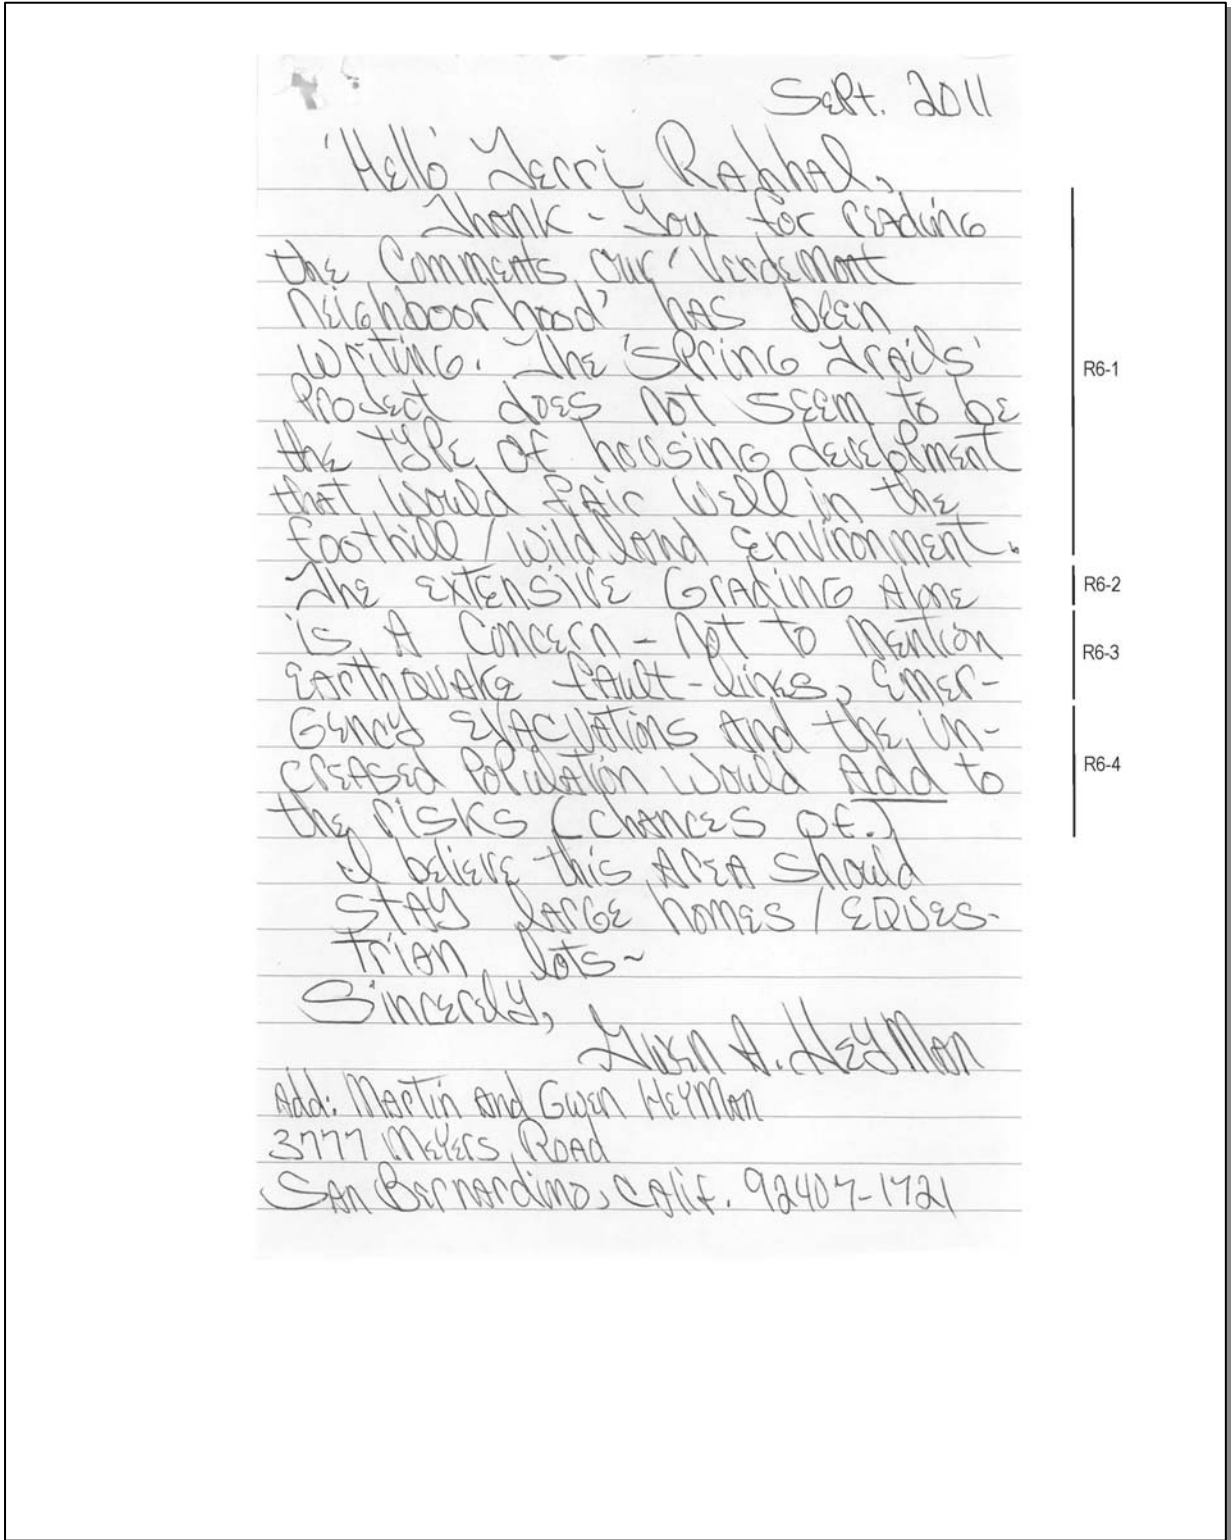 Sept. 2011
'Hello' Terri Rahhal,
Thank-You for reading
the Comments our 'Verdemont
Neighboorhood' has been
writing. The 'Spring Trails'
Project does not seem to be
R6-1
the type of housing development
that would fair well in the
foothill/wildland environment.
The extensive Grading Alone
R6-2
is A Concern - Not to Mention
R6-3
Earthquake fault-lines, emer-
Gency evacuations and the in-
creased Population would Add to
R6-4
the risks (chances of.)
I believe this area should
stay large homes/eques-
trian lots~
Sincerely,
Gwen A. Heyman
Add: Martin and Gwen Heyman
3777 Meyers Road
San Bernardino, Calif. 92407-1721